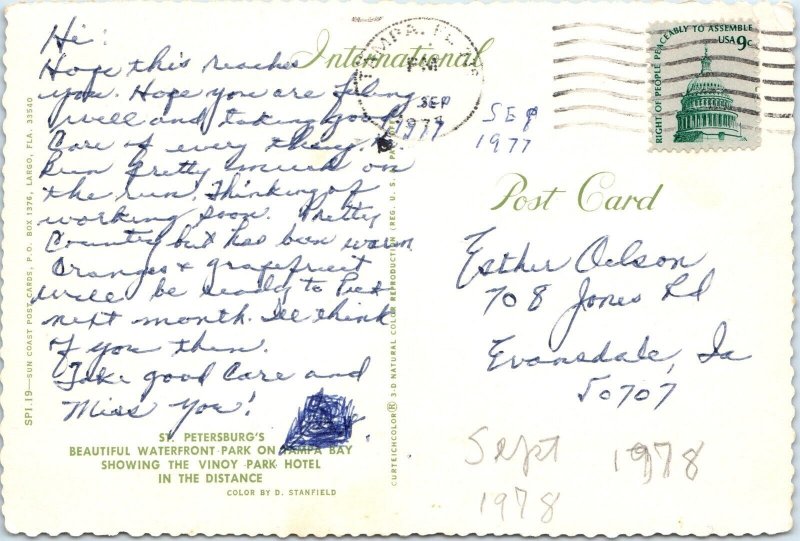 Hi:
Hope this reaches
you. Hope you are filing
well and taking good
care of every thing.
Bun pretty much on
the run. Thinking of
working soon. Pretty
Country but has been warm
Oranges & grapefruit
will be ready to Pick
next month. Ill think
of you then.
Take good Care and
Miss You!
International
TAMPA, FL
PM
SEP
1977
SEP
1977
RIGHT OF PEOPLE PEACEABLY TO ASSEMBLE
USA 9c
Post Card
Esther Oelson
708 Jones Rd
Evansdale, Ia
50707
Sept 1978
1978
ST. PETERSBURG'S
BEAUTIFUL WATERFRONT PARK ON TAMPA BAY
SHOWING THE VINOY PARK HOTEL
IN THE DISTANCE
COLOR BY D. STANFIELD
SP1.19—SUN COAST POST CARDS, P.O. BOX 1376, LARGO, FLA. 33540
CURTEICHCOLOR® 3-D NATURAL COLOR REPRODUCTION (REG. U.S.A.